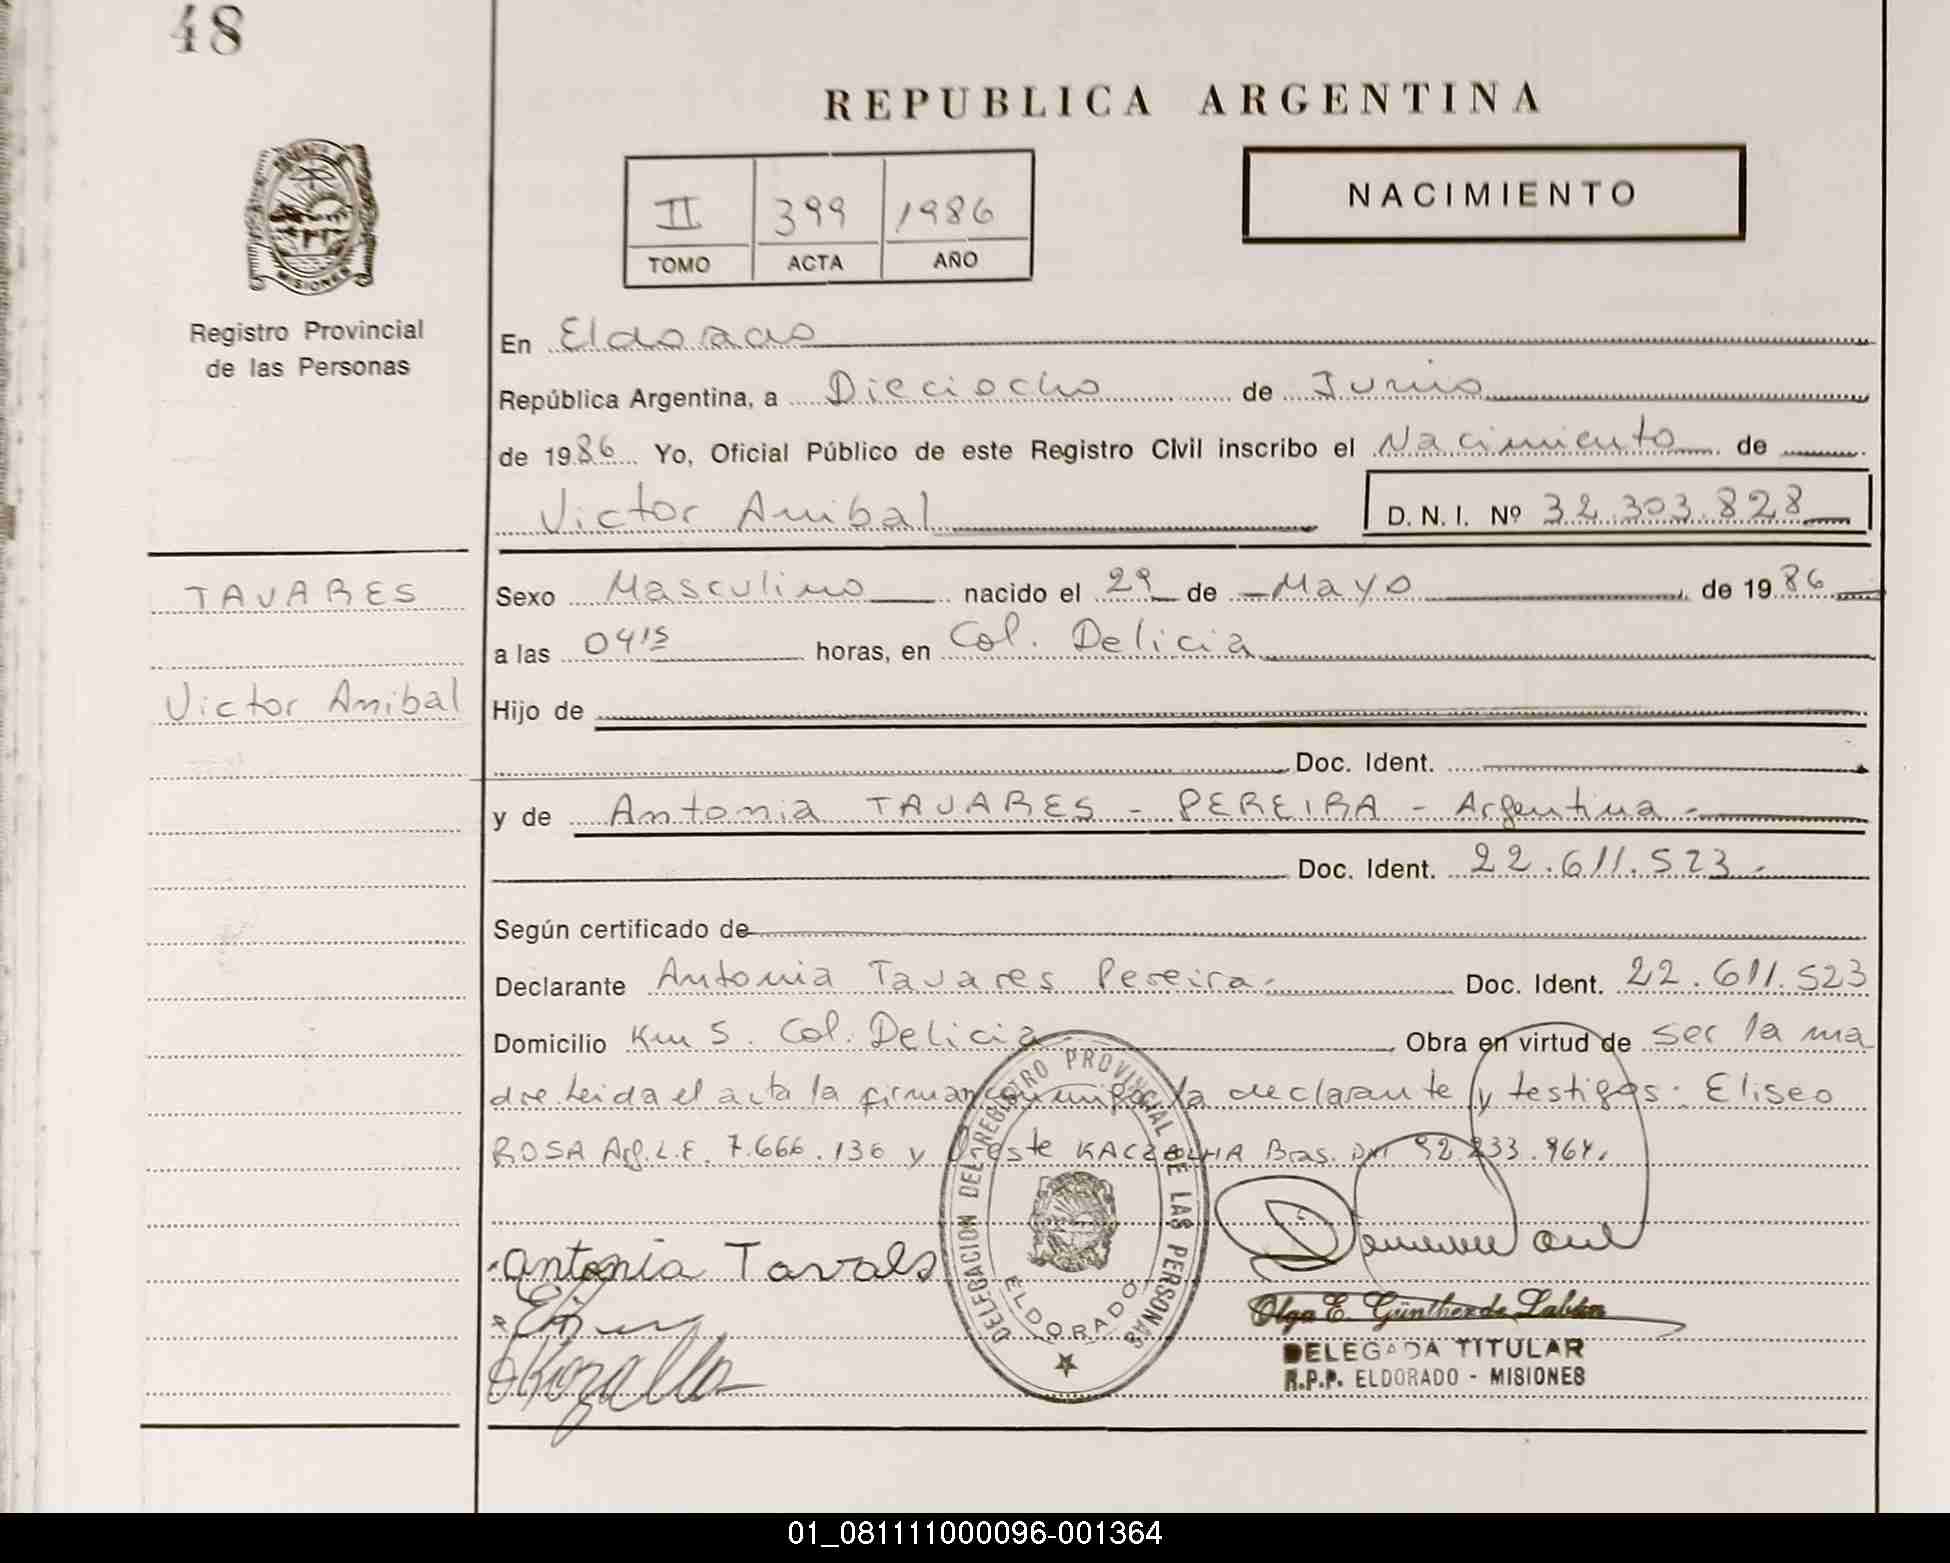 48
REPUBLICA ARGENTINA
II 399 1986
TOMO ACTA AÑO
NACIMIENTO
MISIONES
Registro Provincial
de las Personas
En Eldorado
República Argentina, a Dieciocho de Junio
de 1986 Yo, Oficial Público de este Registro Civil inscribo el Nacimiento de
Victor Anibal D. N. I. Nº 32.303.828
TAVARES
Victor Anibal
Sexo Masculino nacido el 29 de Mayo de 1986
a las 04 15 horas, en Col. Delicia
Hijo de
Doc. Ident.
y de Antonia TAVARES - PEREIRA - Argentina -
Doc. Ident. 22.611.523.-
Según certificado de
Declarante Antonia Tavares Pereira.- Doc. Ident. 22.611.523
Domicilio Km 5. Col. Delicia Obra en virtud de ser la ma
dre leida el acta la firman conmigo la declarante y testigos: Eliseo
ROSA Arg. L.E. 7.666.136 y Oreste Bras. DNI 92.233.964.
Antonia Tavals
DELEGACION DEL REGISTRO PROVINCIAL DE LAS PERSONAS
ELDORADO
Olga E. Günther de Labán
DELEGADA TITULAR
R.P.P. ELDORADO - MISIONES
01_081111000096-001364